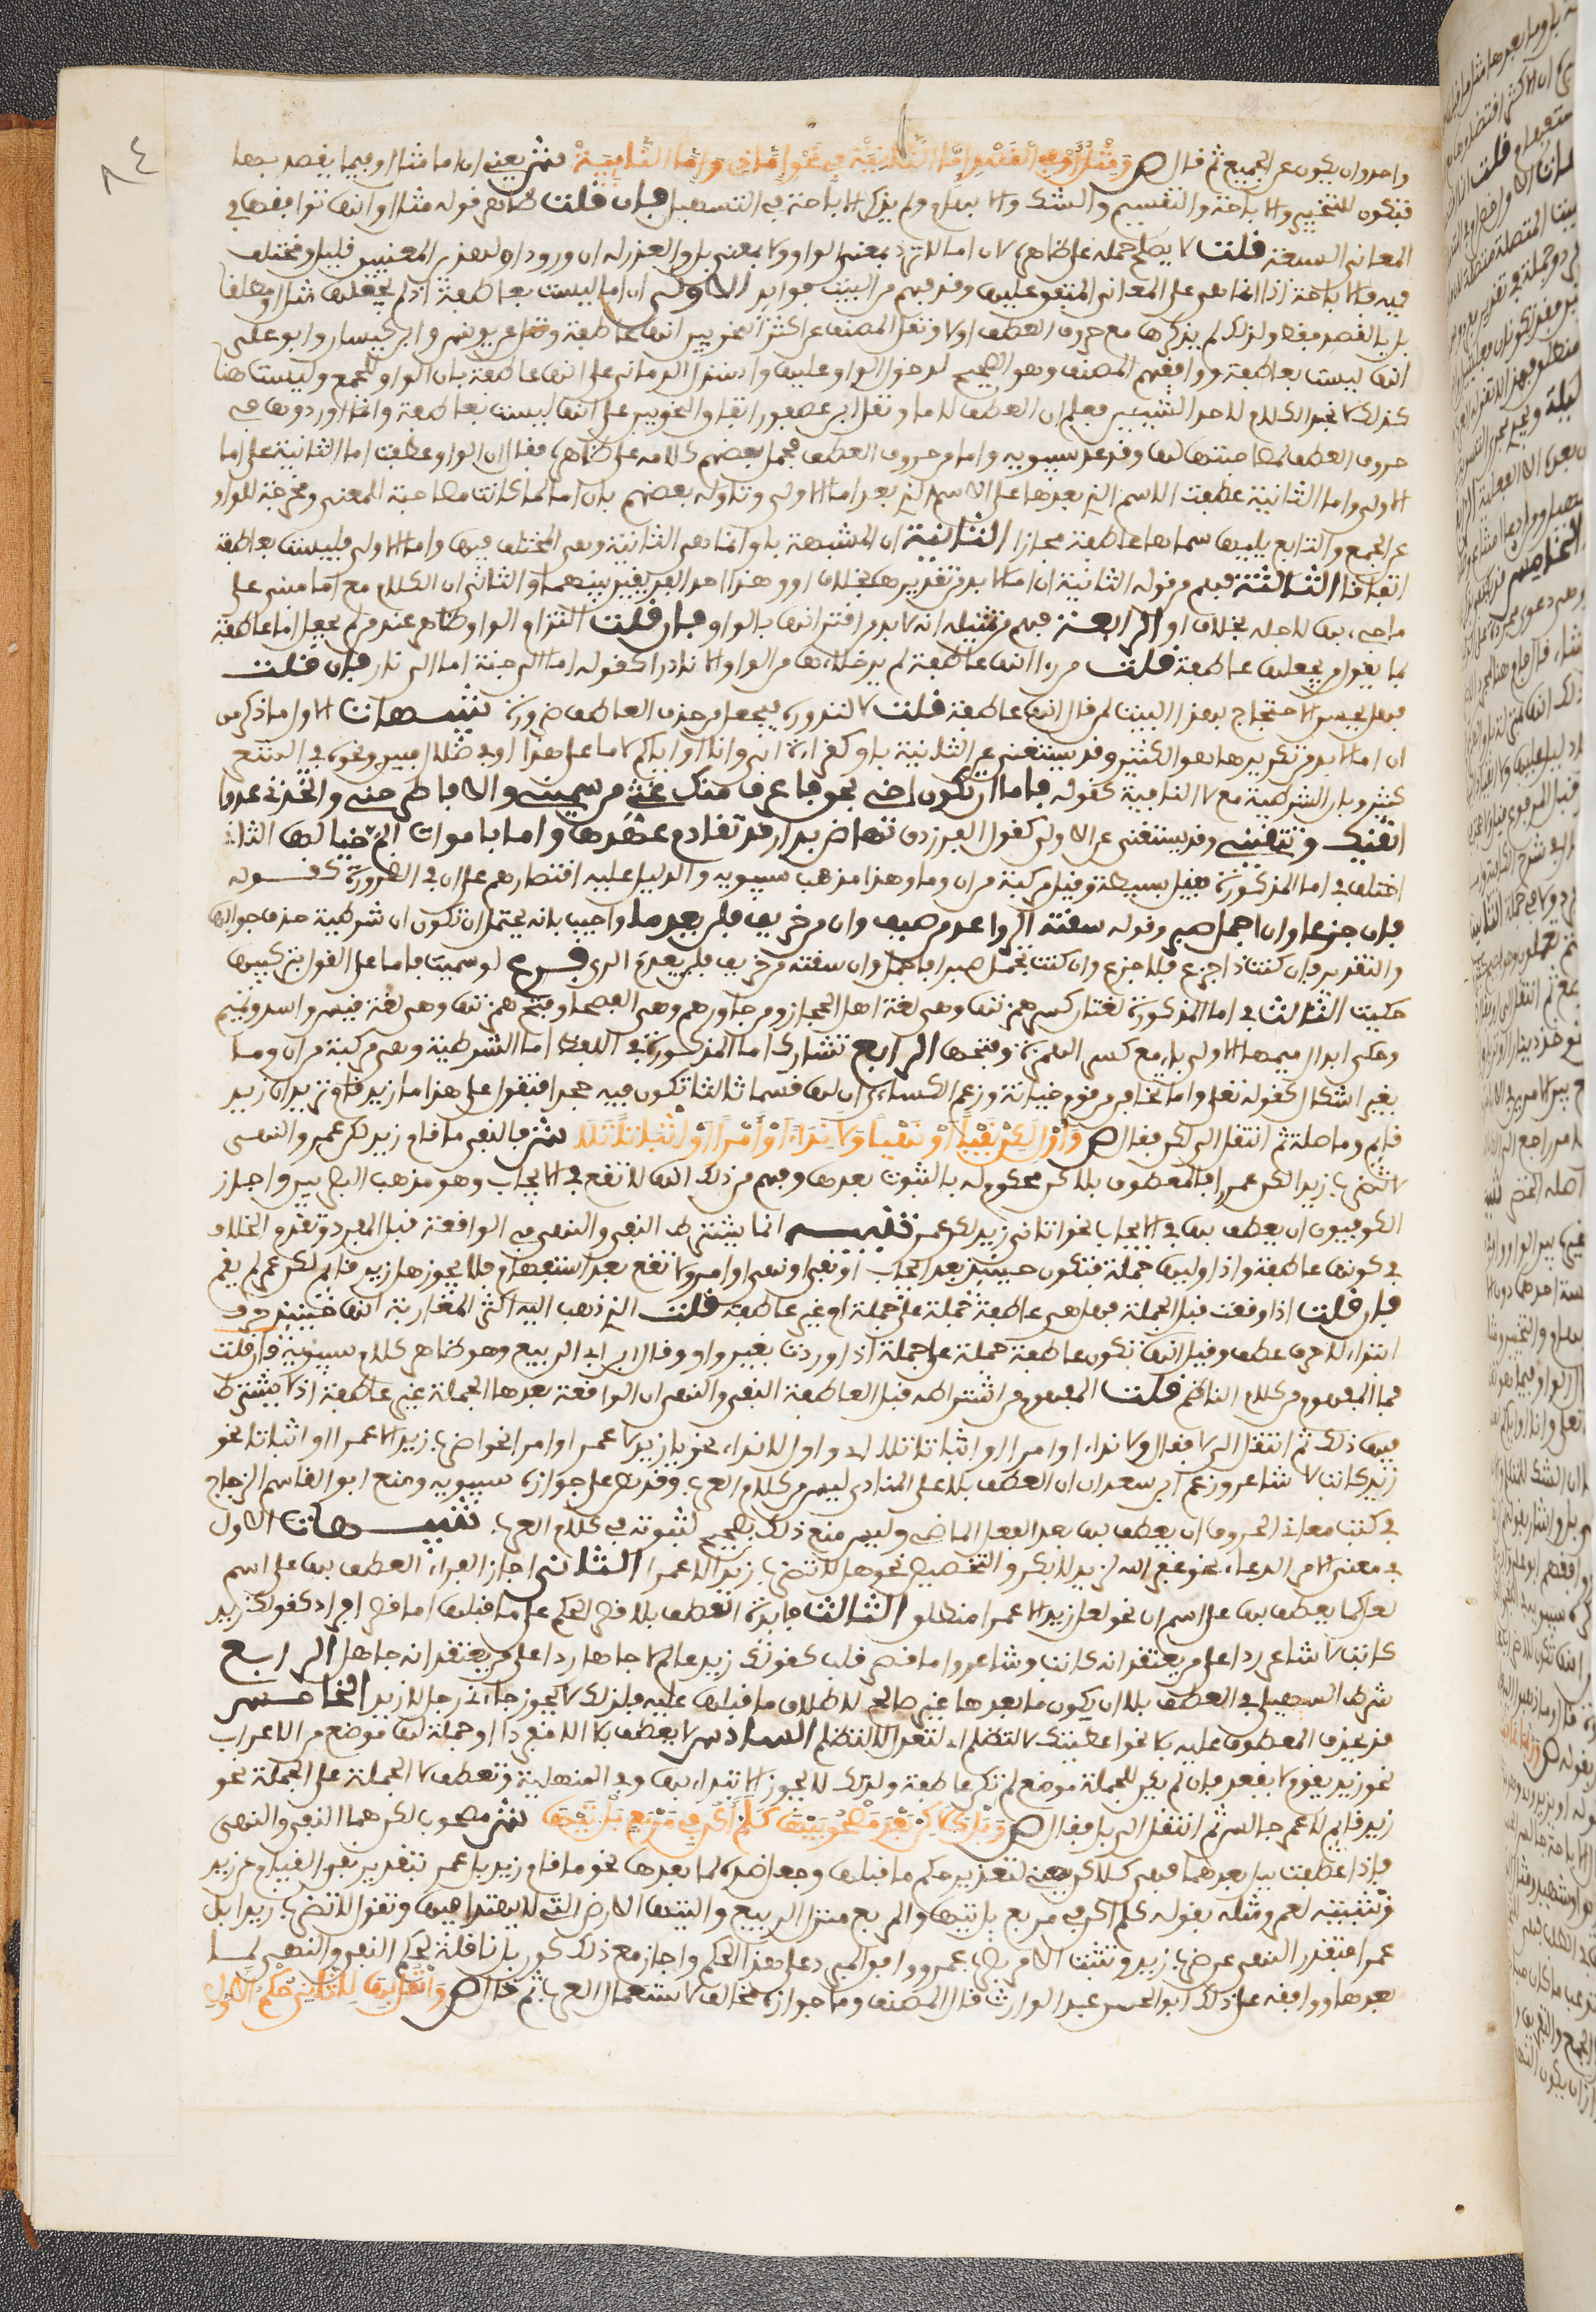 ٨٤
واحد وان يكون عن الجميع ثم قال ص ومثل او في القصد اما الثانية في نحو اما ذي واما النائية ش يعني ان اما مثل او فيما يقصد بها
فتكون للتخيير والاباحة والتقسيم والشك والابهام ولم يذكر الاباحة في التسهيل فان قلت ظاهر قوله مثل او انها توافقها في
المعاني السبعة قلت لا يصح حمله على ظاهره لان اما لا ترد بمعنى الواو ولا بمعنى بل والعذر له ان ورود او لهذين المعنيين قليل ومختلف
فيه فالاحالة اذا انما هي على المعاني المتفق عليها وقد فهم من البيت فوائد الاولى ان اما ليست بعاطفة اذ لم يجعلها مثل او مطلقا
بل في القصد فقط ولذلك لم يذكرها مع حروف العطف اولا ونقل المصنف عن اكثر النحويين انها عاطفة ونقل عن يونس وابن كيسان وابو علي
انها ليست بعاطفة ووافقهم المصنف وهو الصحيح لدخول الواو عليها واستدل الرماني على انها عاطفة بان الواو للجمع وليست هنا
كذلك لانا نجد الكلام لاحد الشيئين فعلم ان العطف لاما ونقل ابن عصفور اتفاق النحويين على انها ليست بعاطفة وانما اوردوها في
حروف العطف لمصاحبتها لها وقد عد سيبويه واما من حروف العطف فحمل بعضهم كلامه على ظاهره فقال ان الواو عطفت اما الثانية على اما
الاولى واما الثانية عطفت الاسم الذي بعدها على الاسم الذي بعد اما الاولى وتاوله بعضهم بان اما لما كانت مصاحبة المعنى ومخرجة للواو
عن الجمع والتابع يليها سماها عاطفة مجازا الثانية ان المشبهة باو انما هي الثانية وهي المختلف فيها واما الاولى فليست بعاطفة
اتفاقا الثالثة فهم من قوله الثانية ان اما لا بد من تقديرها بخلاف او وهذا احد الفرقين بينهما والثاني ان الكلام مع اما مبني على
ما جيء بها لاجله بخلاف او الرابعة فهم من تمثيله انه لا بد من اقترانها بالواو فان قلت التزام الواو ظاهر عند من لم يجعل اما عاطفة
فما يقول من يجعلها عاطفة قلت من راى انها عاطفة لم يرد خلاءها من الواو الا نادرا كقوله اما الى جنة اما الى نار فان قلت
فهل يحسن الاحتجاج بهذا البيت لمن قال انها عاطفة قلت لا لندوره فيجعل من حذف العاطف ضرورة تنبيهات الاول ما ذكر من
ان اما لا بد من تكريرها هو الكثير وقد يستغنى عن الثانية باو كقراءة ابي وانا او اياكم لاما على هدى او في ضلال مبين ونحوه في النثر
كثير وبان الشرطية مع لا النافية كقوله فاما ان تكون اخي بحق فاعرف منك غثي من سميني والا فاطرحني واتخذني عدوا
اتقيك وتتقيني وقد يستغنى عن الاولى كقول الفرزدق تهاض بدار قد تقادم عهدها واما باموات الم خيالها الثاني
اختلف في اما المذكورة فقيل بسيطة وقيل مركبة من ان وما وهذا مذهب سيبويه والدليل عليه اقتصارهم على ان في الضرورة كقوله
فان جزعا وان اجمال صبر وقوله سقته الرواعد من صيف وان من خريف فلن يعدما واجيب بانه يحتمل ان تكون ان شرطية حذف جوابها
والتقدير فان كنت ذا جزع فلا جزع وان كنت مجمل صبر فاجمل وان سقته من خريف فلن يعدم الري فرع لو سميت باما على القول بتركيبها
حكيت الثالث في اما المذكورة لغتان كسر همزتها وهي لغة اهل الحجاز ومن جاورهم وهي الفصحى وفتح همزتها وهي لغة قيس واسد وتميم
وحكى ابدال ميمها الاولى ياء مع كسر الهمزة وفتحها الرابع تشارك اما المذكورة في اللفظ اما الشرطية وهي مركبة من ان وما
بغير اشكال كقوله تعالى واما تخافن من قوم خيانة وزعم الكسائي ان لها قسما ثالثا تكون فيه جحدا فتقول على هذا اما زيد قائم تريد ان زيد
قائم وما صلة ثم انتقل الى لكن فقال ص واول لكن نفيا او نهيا ولا نداء او امرا او اثباتا تلا ش فالنفي ما قام زيد لكن عمرو والنهي
لا تضرب زيدا لكن عمرا فالمعطوف بلكن محكوم له بالثبوت بعدها وفهم من ذلك انها لا تقع في الايجاب وهو مذهب البصريين واجاز
الكوفيون ان يعطف بها في الايجاب نحو اتاني زيد لكن عمرو تنبيه انما يشترط النفي والنهي في الواقعة قبل المفرد وتقدم الخلاف
في كونها عاطفة واذا وليها جملة فتكون حينئذ بعد ايجاب او نفي او نهي او امر ولا تقع بعد استفهام فلا يجوز هل زيد قائم لكن عمرو لم يقم
فان قلت اذا وقعت قبل الجملة فهل هي عاطفة جملة على جملة ام غير عاطفة قلت الذي ذهب اليه اكثر المغاربة انها حينئذ حرف
ابتداء لا حرف عطف وقيل انها تكون عاطفة جملة على جملة اذا وردت بغير واو وقال ابن ابي الربيع وهو ظاهر كلام سيبويه فان قلت
فما المفهوم من كلام الناظم قلت المفهوم من اشتراطه قبل العاطفة النفي والنهي ان الواقعة بعدها الجملة غير عاطفة اذ لا يشترط
فيها ذلك ثم انتقل الى لا فقال ولا نداء او امرا او اثباتا تلا اي واول لا نداء نحو يا زيد لا عمرو او امرا نحو اضرب زيدا لا عمرا او اثباتا نحو
زيد كاتب لا شاعر وزعم ابن سعدان ان العطف بلا على المنادى ليس من كلام العرب وقد نص على جوازه سيبويه ومنع ابو القاسم الزجاج
في كتب معاني الحروف ان يعطف بها بعد الفعل الماضي وليس منع ذلك بصحيح لثبوته في كلام العرب تنبيهات الاول
في معنى الامر الدعاء نحو غفر الله لزيد لا بكر والتحضيض نحو هلا تضرب زيدا لا عمرا الثاني اجاز الفراء العطف بها على اسم
لعل كما يعطف بها على اسم ان نحو لعل زيدا لا عمرا منطلق الثالث فائدة العطف بلا قصر الحكم على ما قبلها اما قصر افراد كقولك زيد
كاتب لا شاعر ردا على من يعتقد انه كاتب وشاعر واما قصر قلب كقولك زيد عالم لا جاهل ردا على من يعتقد انه جاهل الرابع
شرط السهيلي في العطف بلا ان يكون ما بعدها غير صالح لاطلاق ما قبلها عليه فلذلك لا يجوز جاءني رجل لا زيد الخامس
قد يحذف المعطوف عليه بلا نحو اعطيتك لا لتظلم اي لتعدل لا لتظلم السادس لا يعطف بلا الا مفردا او جملة لها موضع من الاعراب
نحو زيد يقوم لا يقعد فان لم يكن للجملة موضع لم تكن عاطفة ولذلك لا يجوز الابتداء بها وفي النهاية وتعطف لا الجملة على الجملة نحو
زيد قائم لا عمرو جالس ثم انتقل الى بل فقال ص وبل كلكن بعد مصحوبيها كلم اكن في مربع بل تيها ش مصحوبا لكن هما النفي والنهي
فاذا عطفت ببل بعدهما فهي كلاكن يعني لتقرير حكم ما قبلها وجعل ضده لما بعدها نحو ما قام زيد بل عمرو تقدير نفي القيام عن زيد
وتثبيته لعمرو ومثله بقوله كلم اكن في مربع بل تيها والمربع منزل الربيع والتيهاء الارض التي لا يهتدى فيها وتقول لا تضرب زيدا بل
عمرا فتقدر النهي عن ضرب زيد وتثبت الامر بضرب عمرو ووافق المبرد على هذا الحكم واجاز مع ذلك كون بل ناقلة لحكم النفي والنهي لما
بعدها ووافقه على ذلك ابو الحسن عبد الوارث قال المصنف وما جوازه مخالف لاستعمال العرب ثم قال ص وانقل بها للثاني حكم الاول